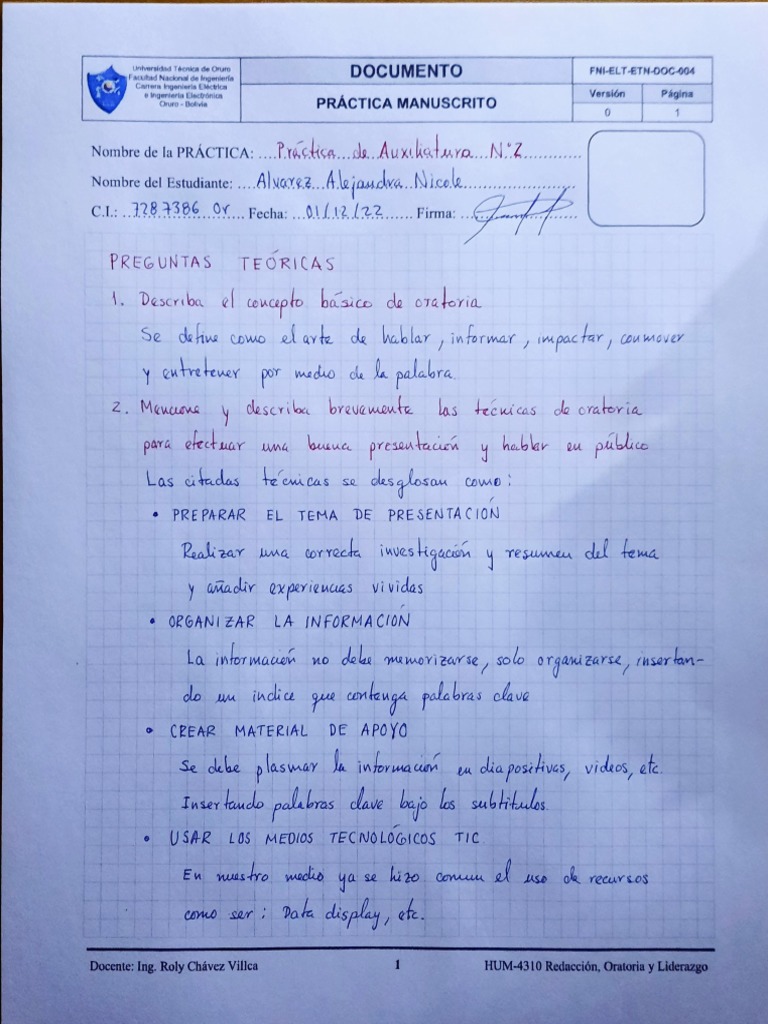 Universidad Técnica de Oruro
Facultad Nacional de Ingeniería
Carrera Ingeniería Eléctrica
e Ingeniería Electrónica
Oruro - Bolivia
DOCUMENTO
PRÁCTICA MANUSCRITO
FNI-ELT-ETN-DOC-004
Versión Página
0 1
Nombre de la PRÁCTICA: ....Práctica de Auxiliatura N°2............
Nombre del Estudiante: ....Alvarez Alejandra Nicole....................
C.I.: ..7287386 Or.. Fecha: .01/12/22....... Firma: ..................
PREGUNTAS TEÓRICAS
1. Describa el concepto básico de oratoria
Se define como el arte de hablar, informar, impactar, conmover
y entretener por medio de la palabra.
2. Mencione y describa brevemente las técnicas de oratoria
para efectuar una buena presentación y hablar en público
Las citadas técnicas se desglosan como:
• PREPARAR EL TEMA DE PRESENTACIÓN
Realizar una correcta investigación y resumen del tema
y añadir experiencias vividas
• ORGANIZAR LA INFORMACIÓN
La información no debe memorizarse, solo organizarse, insertan-
do un indice que contenga palabras clave
• CREAR MATERIAL DE APOYO
Se debe plasmar la información en diapositivas, videos, etc.
Insertando palabras clave bajo los subtitulos.
• USAR LOS MEDIOS TECNOLÓGICOS TIC
En nuestro medio ya se hizo comun el uso de recursos
como ser: Data display, etc.
Docente: Ing. Roly Chávez Villca 1 HUM-4310 Redacción, Oratoria y Liderazgo